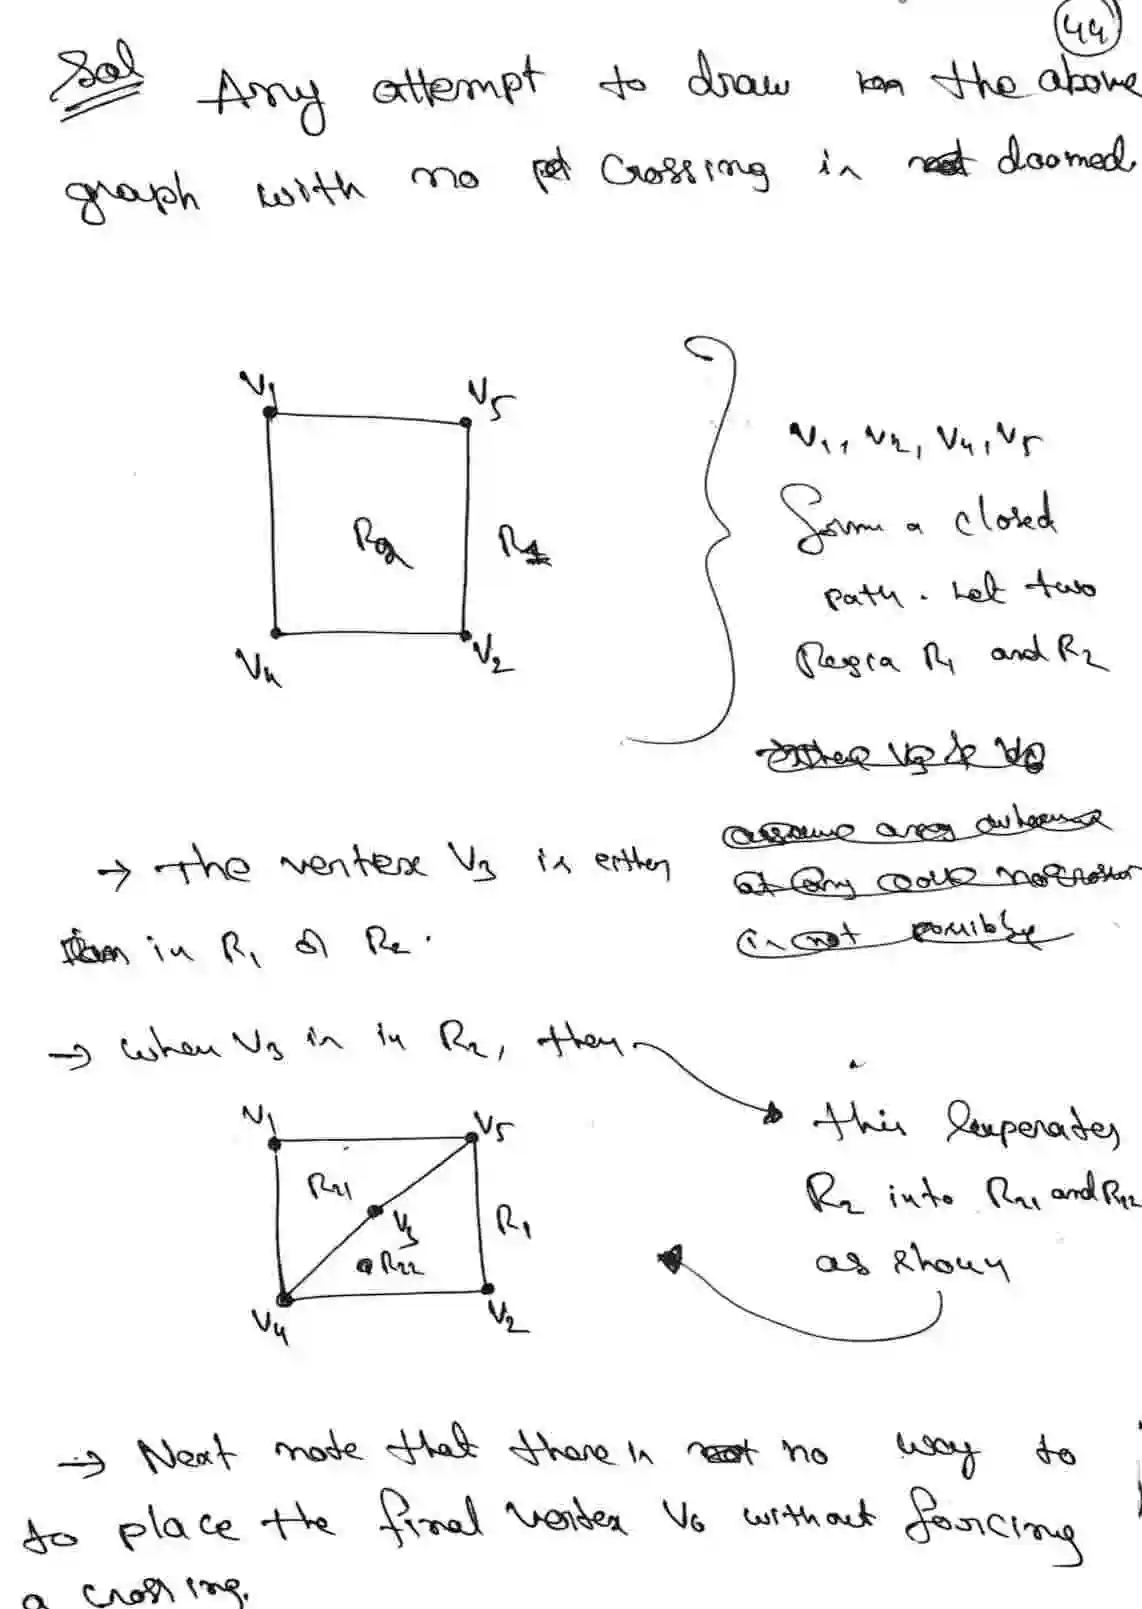 44
Sol Any attempt to draw the above
graph with no crossing is doomed
V1 V5
R2 R1
V4 V2
V1, V2, V4, V5
form a closed
path. Let two
Region R1 and R2
→ The vertex V3 is either
in R1 or R2.
→ When V3 is in R2, then
this seperates
R2 into R21 and R22
as shown
V1 V5
R21
V3 R1
R22
V4 V2
→ Next note that there is no way to
to place the final vertex V6 without forcing
a crossing.